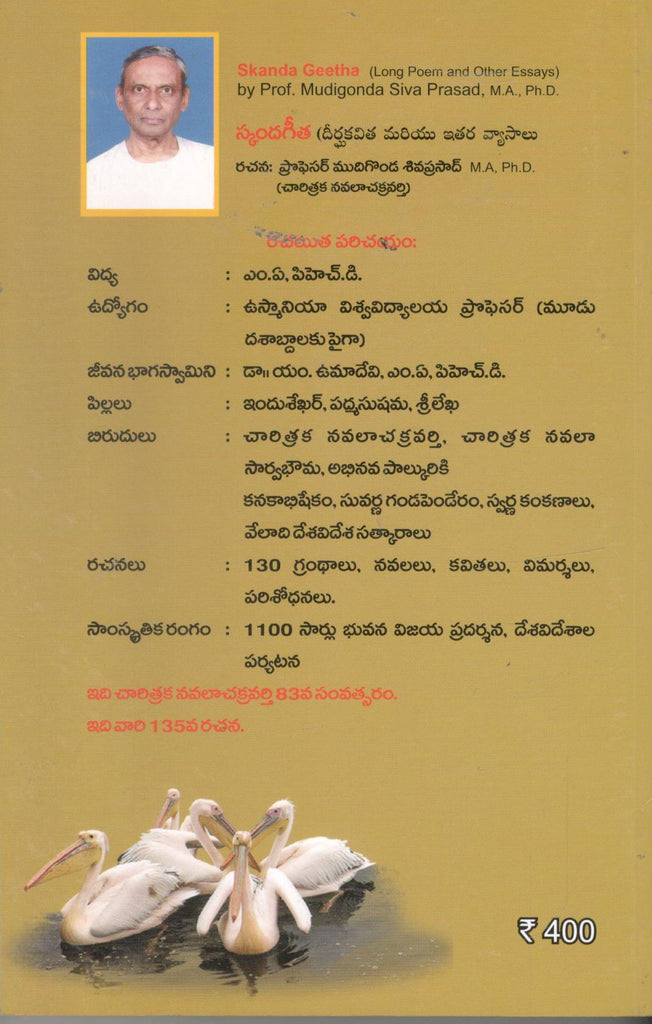 Skanda Geetha (Long Poem and Other Essays)
by Prof. Mudigonda Siva Prasad, M.A., Ph.D.
స్కందగీత (దీర్ఘకవిత మరియు ఇతర వ్యాసాలు
రచన: ప్రొఫెసర్ ముదిగొండ శివప్రసాద్ M.A, Ph.D.
(చారిత్రక నవలాచక్రవర్తి)
రచయిత పరిచయం:
విద్య : ఎం.ఏ, పిహెచ్.డి.
ఉద్యోగం : ఉస్మానియా విశ్వవిద్యాలయ ప్రొఫెసర్ (మూడు
దశాబ్దాలకు పైగా)
జీవన భాగస్వామిని : డా॥ యం. ఉమాదేవి, ఎం.ఏ, పిహెచ్.డి.
పిల్లలు : ఇందుశేఖర్, పద్మసుషమ, శ్రీలేఖ
బిరుదులు : చారిత్రక నవలాచక్రవర్తి, చారిత్రక నవలా
సార్వభౌమ, అభినవ పాల్కురికి
కనకాభిషేకం, సువర్ణ గండపెండేరం, స్వర్ణ కంకణాలు,
వేలాది దేశవిదేశ సత్కారాలు
రచనలు : 130 గ్రంథాలు, నవలలు, కవితలు, విమర్శలు,
పరిశోధనలు.
సాంస్కృతిక రంగం : 1100 సార్లు భువన విజయ ప్రదర్శన, దేశవిదేశాల
పర్యటన
ఇది చారిత్రక నవలాచక్రవర్తి 83వ సంవత్సరం.
ఇది వారి 135వ రచన.
₹ 400